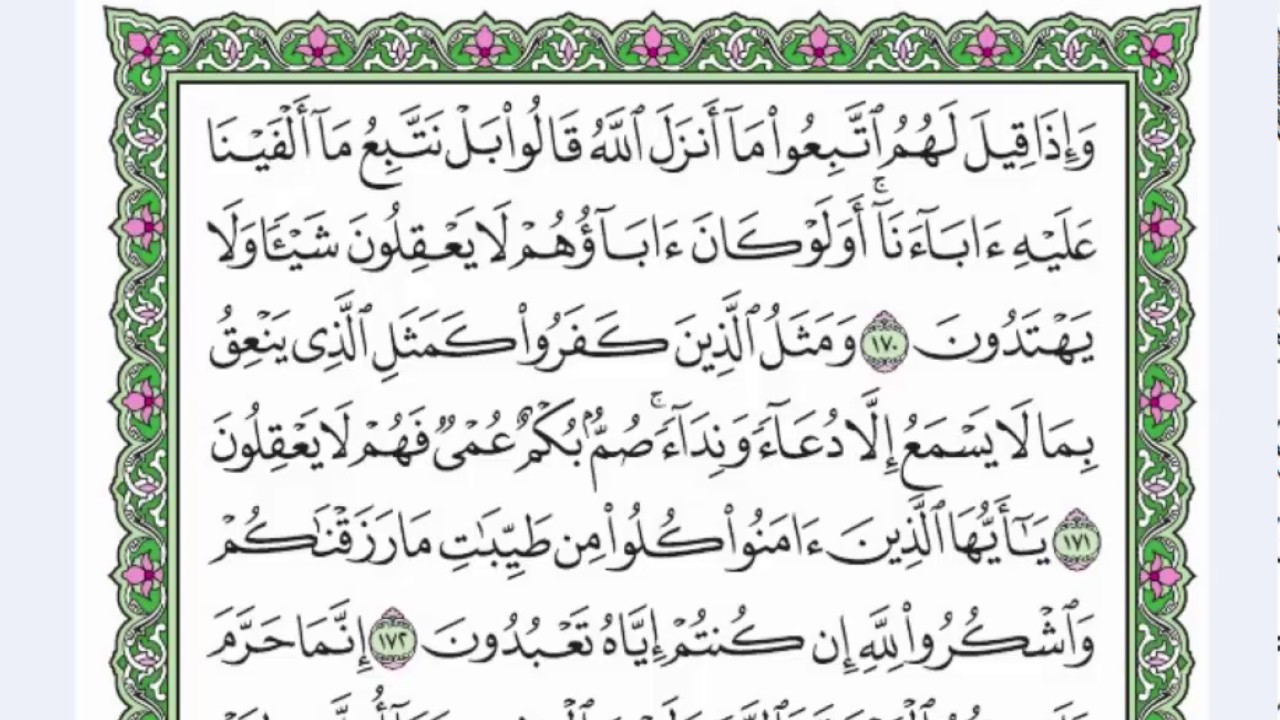 وَإِذَا قِيلَ لَهُمُ ٱتَّبِعُوا۟ مَآ أَنزَلَ ٱللَّهُ قَالُوا۟ بَلْ نَتَّبِعُ مَآ أَلْفَيْنَا
عَلَيْهِ ءَابَآءَنَآ ۚ أَوَلَوْ كَانَ ءَابَآؤُهُمْ لَا يَعْقِلُونَ شَيْـًٔا وَلَا
يَهْتَدُونَ ١٧٠ وَمَثَلُ ٱلَّذِينَ كَفَرُوا۟ كَمَثَلِ ٱلَّذِى يَنْعِقُ
بِمَا لَا يَسْمَعُ إِلَّا دُعَآءً وَنِدَآءً ۚ صُمٌّۢ بُكْمٌ عُمْىٌ فَهُمْ لَا يَعْقِلُونَ
١٧١ يَـٰٓأَيُّهَا ٱلَّذِينَ ءَامَنُوا۟ كُلُوا۟ مِن طَيِّبَـٰتِ مَا رَزَقْنَـٰكُمْ
وَٱشْكُرُوا۟ لِلَّهِ إِن كُنتُمْ إِيَّاهُ تَعْبُدُونَ ١٧٢ إِنَّمَا حَرَّمَ